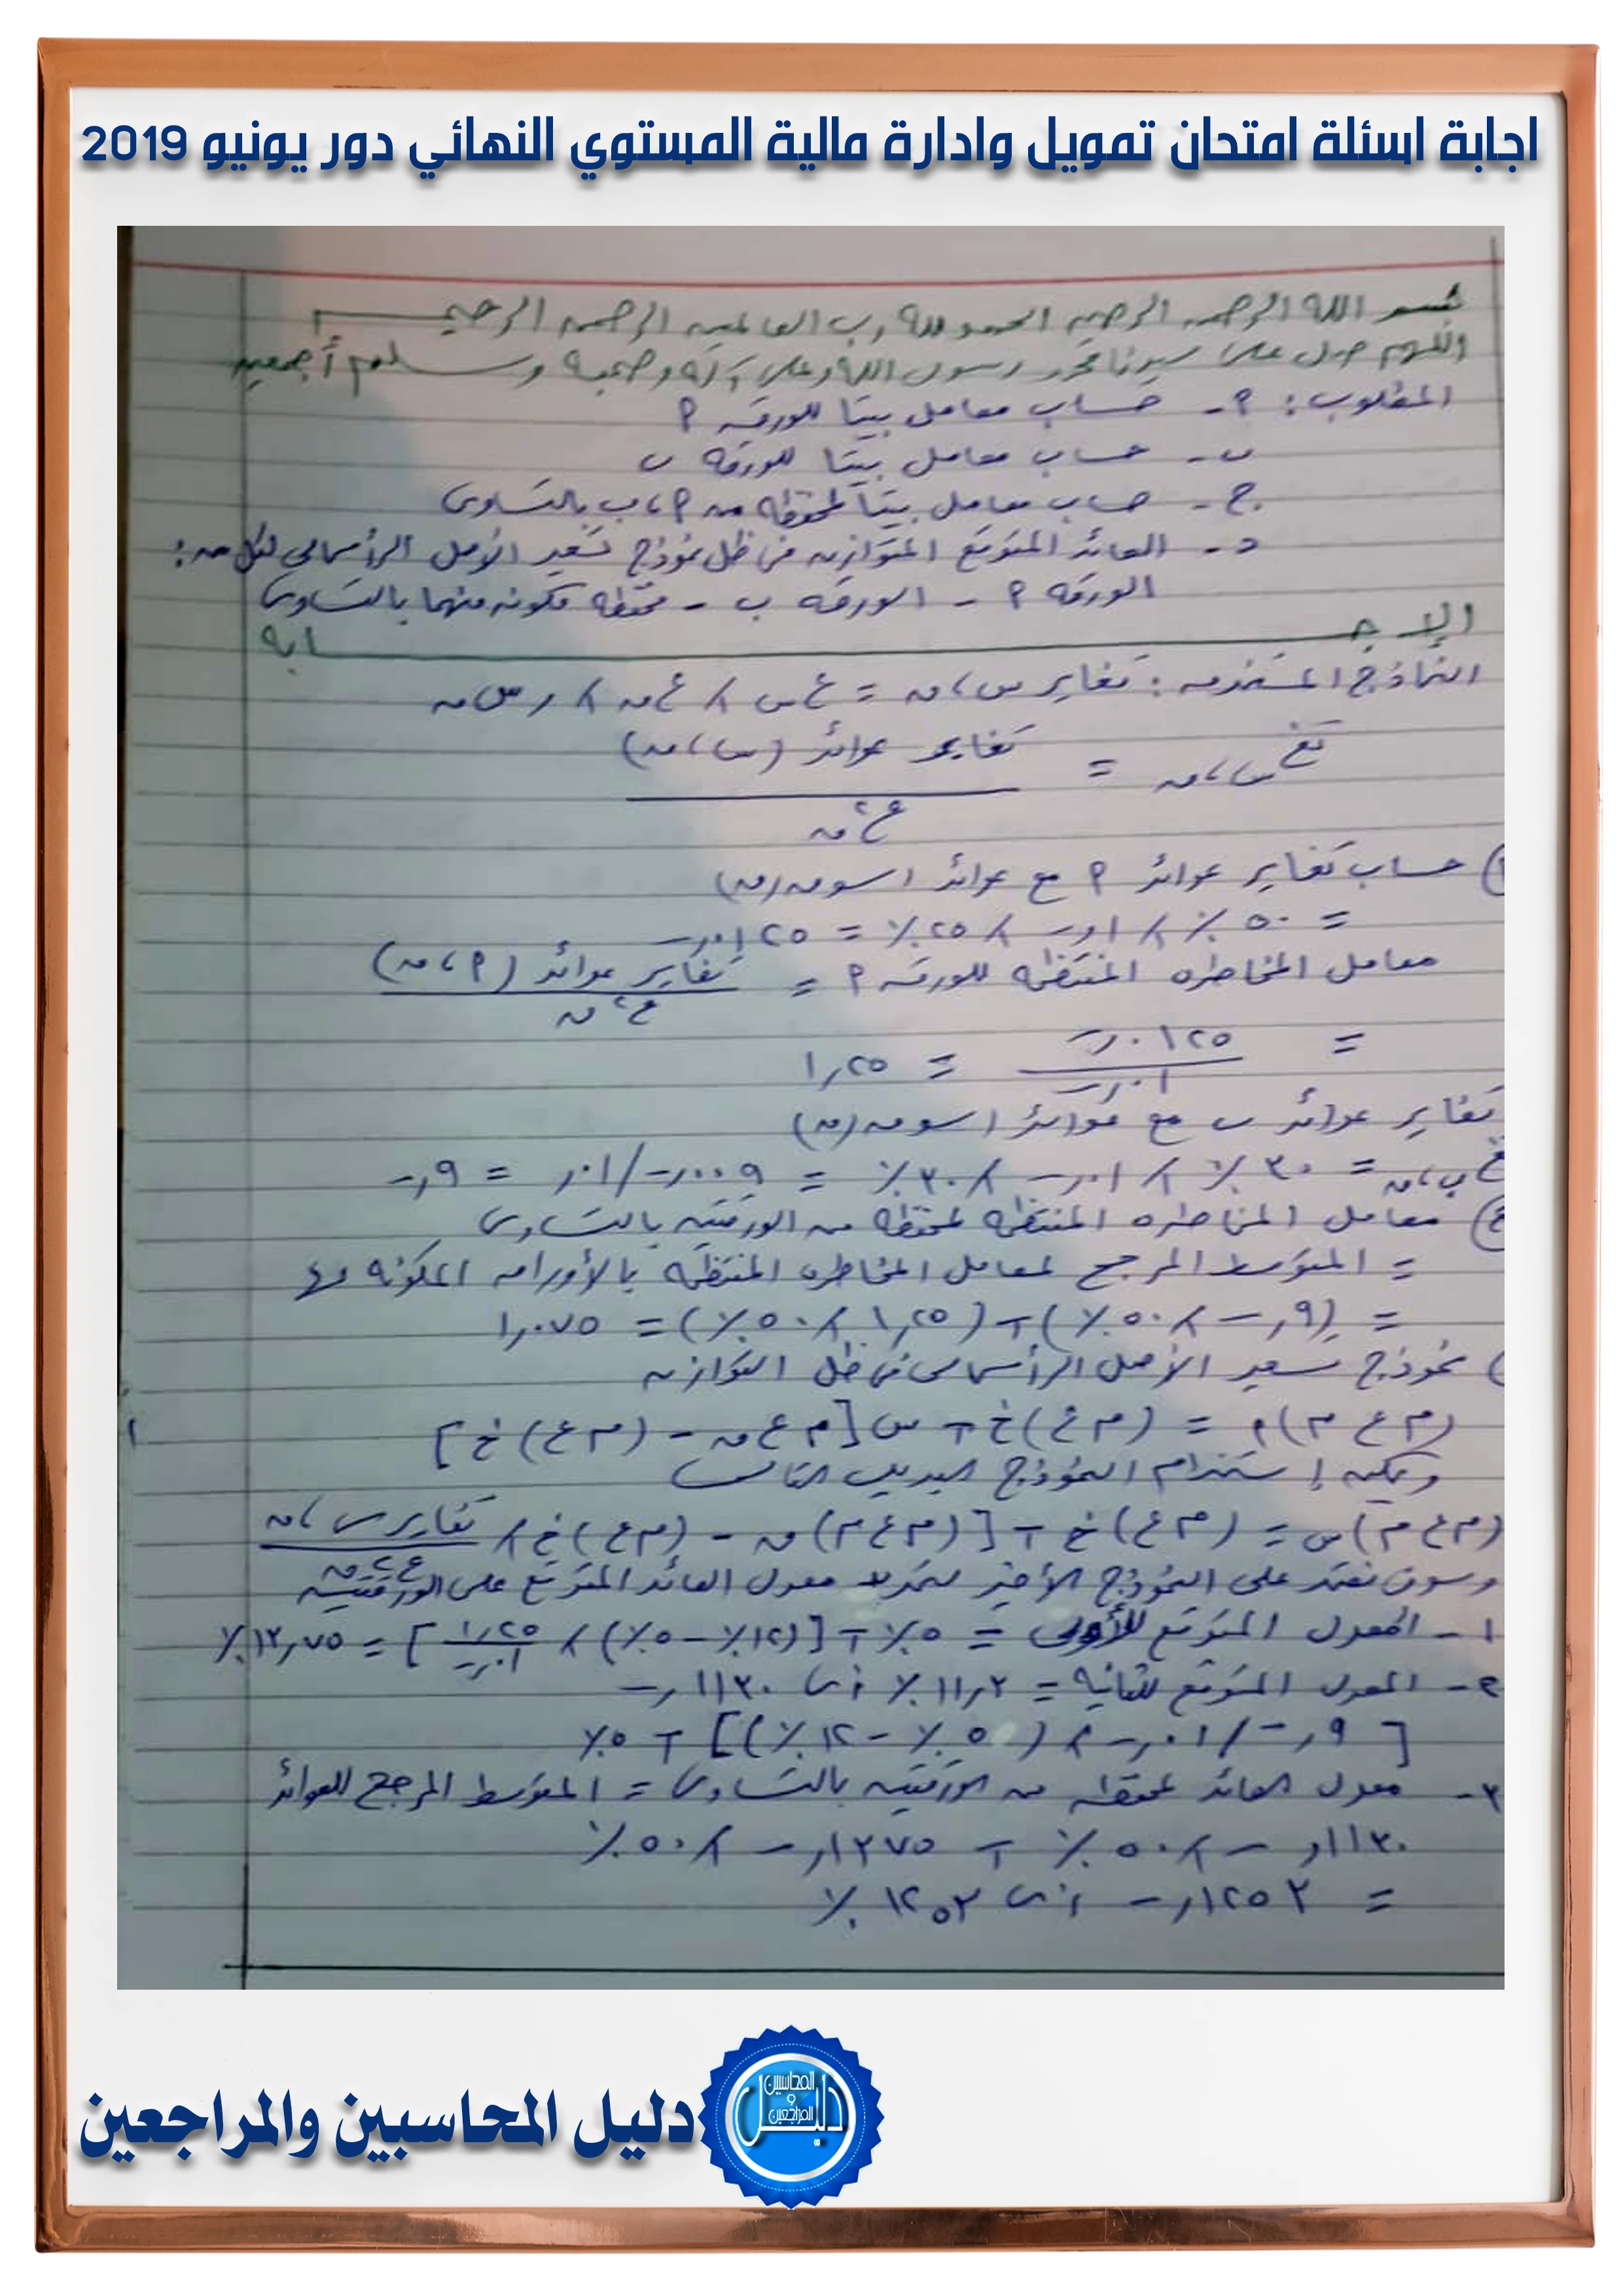 اجابة اسئلة امتحان تمويل وادارة مالية المستوي النهائي دور يونيو 2019
بسم الله الرحمن الرحيم الحمد لله رب العالمين الرحمن الرحيم
اللهم صل على سيدنا محمد رسول الله وعلى آله وصحبه وسلم أجمعين
المطلوب : ٩- حساب معامل بيتا للورقه ٩
ب- حساب معامل بيتا للورقه ب
ج- حساب معامل بيتا لمحفظه من ٩، ب بالتساوى
د- العائد المتوقع المتوازن فى ظل نموذج تسعير الأصل الرأسمالى لكل من :
الورقه ٩ - الورقه ب - محفظه مكونه منهما بالتساوى
الإجـــابه
النماذج المستخدمه : تغاير س، ن = ع س × ع ن × ر س ن
تغ س، ن = تغاير عوائد (س، ن)
ع٢ ن
حساب تغاير عوائد ٩ مع عوائد السوق (ن)
= ٥٠٪ × ,١ × ٢٥٪ = ,٠١٢٥
معامل المخاطره المنتظمه للورقه ٩ = تغاير عوائد (٩، ن)
ع٢ ن
= ,٠١٢٥ = ١,٢٥
,٠١
تغاير عوائد ب مع عوائد السوق (ن)
ب، ن = ٣٠٪ × ,٠١ × ٣٠٪ = ,٠٠٩ / ,٠١ = ,٩
معامل المخاطره المنتظمه لمحفظه من الورقتين بالتساوى
= المتوسط المرجح لمعامل المخاطره المنتظمه بالأوراق المكونه لها
= (,٩ × ٥٠٪) + (١,٢٥ × ٥٠٪) = ١,٠٧٥
نموذج تسعير الأصل الرأسمالى فى ظل التوازن
(م ع م) ٩ = (م ع) خ + س [م ع ن - (م ع) خ]
ويمكن إستخدام النموذج البديل التالى
(م ع م) س = (م ع) خ + [(م ع م) ن - (م ع) خ] × تغاير س، ن
ع٢ ن
وسوف نعتمد على النموذج الأخير لتحديد معدل العائد المتوقع على الورقتين
١- المعدل المتوقع للأولى = ٥٪ + [(١٢٪ - ٥٪) × ١,٢٥ / ,٠١] = ١٣,٧٥٪
٢- المعدل المتوقع للثانيه = ١١,٣٪ أى ,١١٣٠
[,٩ / ,٠١ × (٥٪ - ١٢٪)] + ٥٪
٣- معدل العائد لمحفظه من الورقتين بالتساوى = المتوسط المرجح للعوائد
,١١٣٠ × ٥٠٪ + ,١٣٧٥ × ٥٠٪
= ,١٢٥٣ أى ١٢,٥٣٪
دليل المحاسبين والمراجعين
دليل
المحاسبين
و
المراجعين